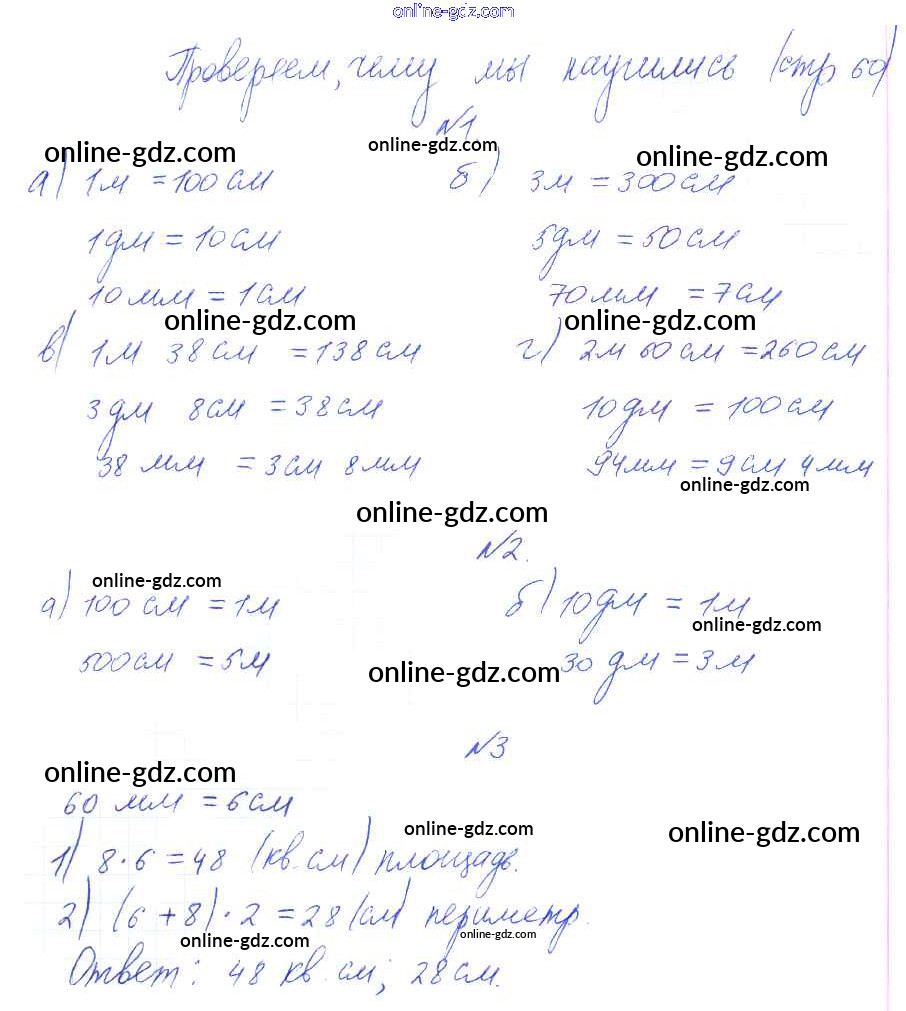 online-gdz.com
Проверяем, чему мы научились (стр 60)
№1
online-gdz.com online-gdz.com online-gdz.com
а) 1м = 100 см б) 3м = 300 см
1дм = 10 см 5дм = 50 см
10 мм = 1 см 70 мм = 7 см
online-gdz.com online-gdz.com
в) 1м 38 см = 138 см г) 2м 60 см = 260 см
3 дм 8 см = 38 см 10 дм = 100 см
38 мм = 3 см 8 мм 94 мм = 9 см 4 мм
online-gdz.com
online-gdz.com
№2.
online-gdz.com
а) 100 см = 1м б) 10 дм = 1м
online-gdz.com
500 см = 5м 30 дм = 3м
online-gdz.com
№3
online-gdz.com
60 мм = 6 см
online-gdz.com online-gdz.com
1) 8 · 6 = 48 (кв. см) площадь.
2) (6 + 8) · 2 = 28 (см) периметр.
online-gdz.com online-gdz.com
Ответ: 48 кв. см; 28 см.